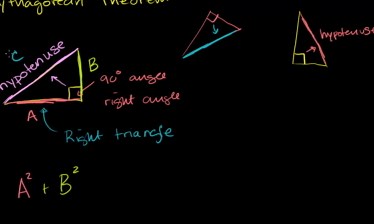 ythagorean Theorem
C
hypotenuse
B
90° angle
right angle
A
Right triangle
A² + B²
hypotenuse